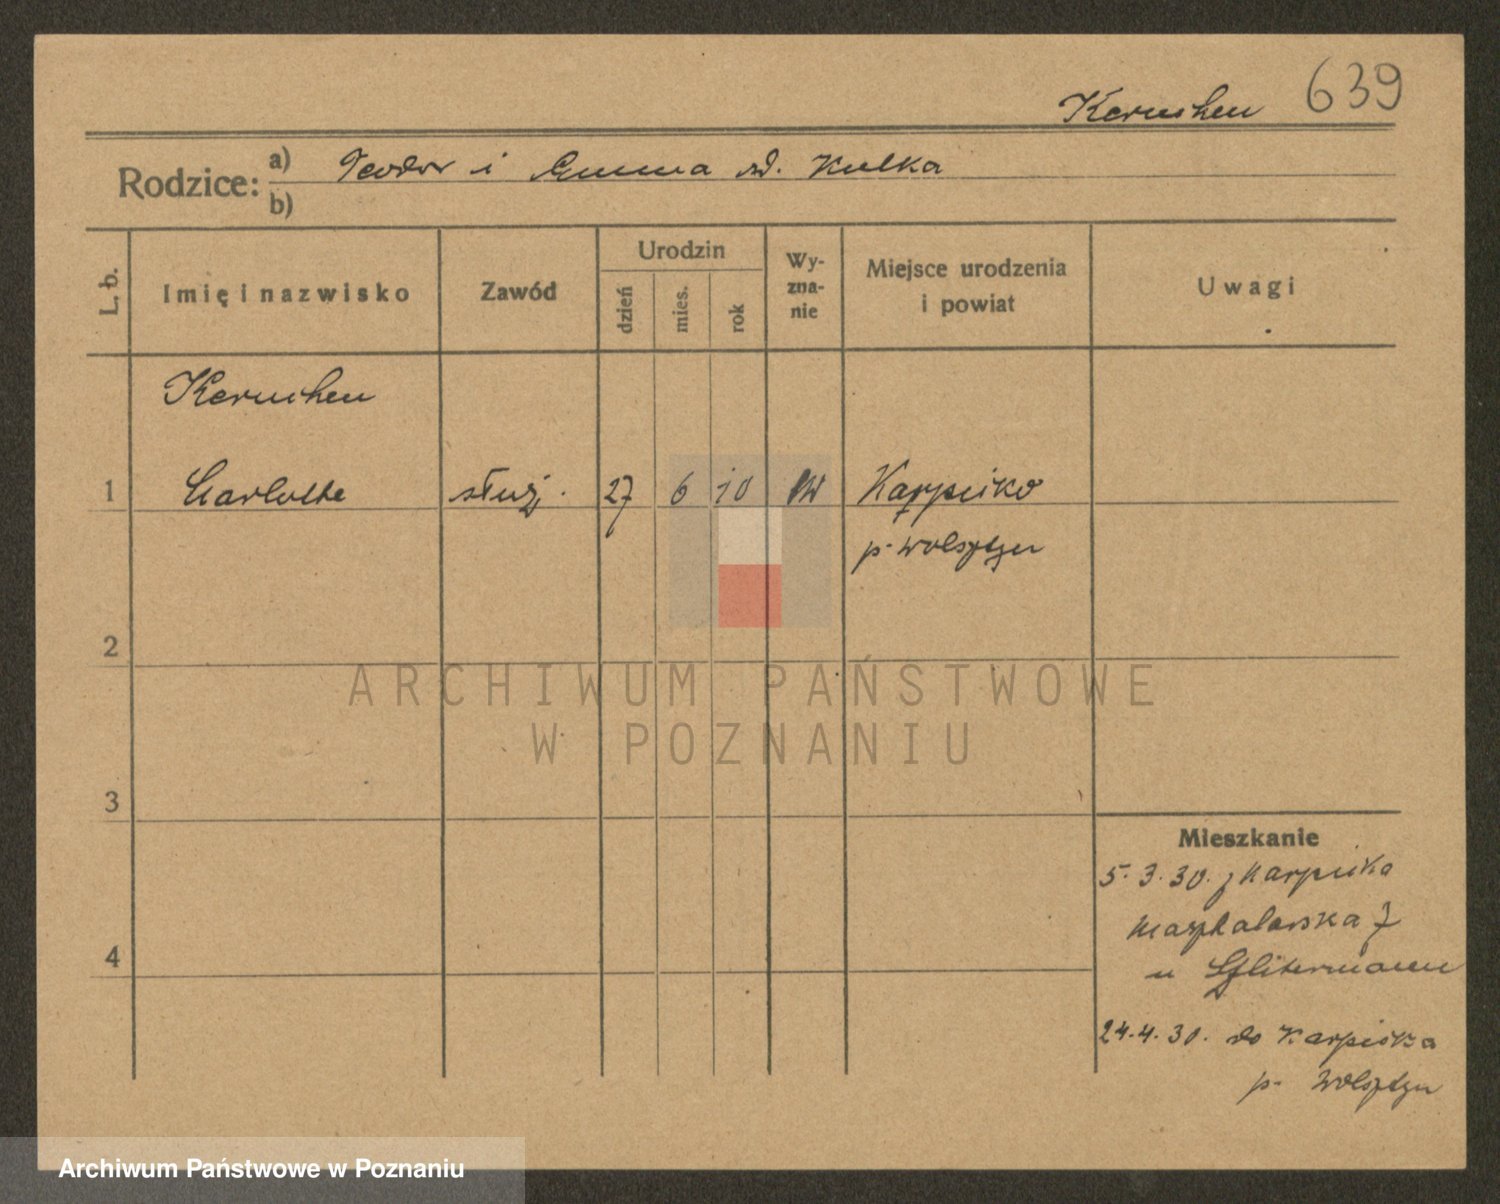 639
Rodzice: a) Teodor i Emma zd. Kulka
b)
L. b.
Imię i nazwisko
Zawód
Urodzin
dzień
mies.
rok
Wy-
zna-
nie
Miejsce urodzenia
i powiat
Uwagi
1 Charlotte służ. 27 6 10 Karpicko
p. Wolsztyn
2
3
4
Mieszkanie
5.3.30. z Karpicka
Marszałkowska 7
u
24.4.30. do Karpicka
p. Wolsztyn
ARCHIWUM PAŃSTWOWE
W POZNANIU
Archiwum Państwowe w Poznaniu